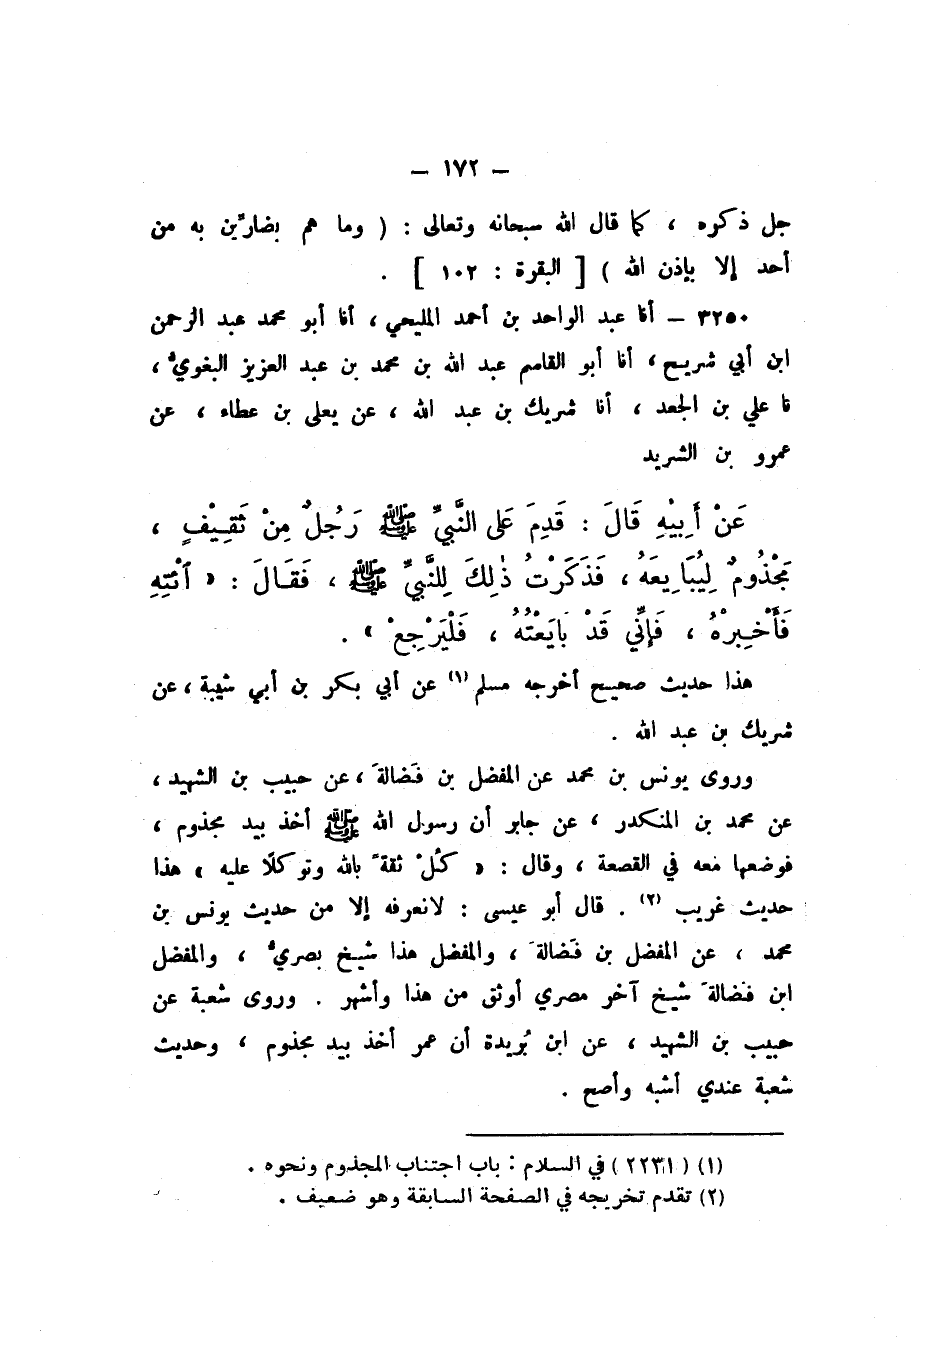 – ١٧٢ –
جل ذكره ، كما قال الله سبحانه وتعالى : ( وما هم بضارّين به من
أحد إلا بإذن الله ) [ البقرة : ١٠٢ ] .
٣٢٥٠ – أنا عبد الواحد بن أحمد المليحي ، أنا أبو محمد عبد الرحمن
ابن أبي شريح ، أنا أبو القاسم عبد الله بن محمد بن عبد العزيز البغويُّ ،
نا علي بن الجعد ، أنا شريك بن عبد الله ، عن يعلى بن عطاء ، عن
عمرو بن الشريد
عَنْ أَبِيْهِ قَالَ : قَدِمَ عَلى النَّبيِّ ﷺ رَجُلٌ مِنْ ثَقِيْفٍ ،
مَجْذُومٌ لِيُبَايِعَهُ ، فَذَكَرْتُ ذٰلِكَ لِلنَّبيِّ ﷺ ، فَقَالَ : « ٱئْتِهِ
فَأَخْبِرْهُ ، فَإنِّي قَدْ بَايَعْتُهُ ، فَلْيَرْجِعْ » .
هذا حديث صحيح أخرجه مسلم (١) عن أبي بكر بن أبي شيبة ، عن
شريك بن عبد الله .
وروى يونس بن محمد عن المفضل بن فَضالةَ ، عن حبيب بن الشهيد ،
عن محمد بن المنكدر ، عن جابر أن رسول الله ﷺ أخذ بيد مجذوم ،
فوضعها معه في القصعة ، وقال : « كُلْ ثقةً بالله وتوكلًا عليه » هذا
حديث غريب (٢) . قال أبو عيسى : لانعرفه إلا من حديث يونس بن
محمد ، عن المفضل بن فَضالةَ ، والمفضل هذا شيخ بصريٌّ ، والمفضل
ابن فضالةَ شيخ آخر مصري أوثق من هذا وأشهر . وروى شعبة عن
حبيب بن الشهيد ، عن ابن بُريدة أن عمر أخذ بيد مجذوم ، وحديث
شعبة عندي أشبه وأصح .
(١) ( ٢٢٣١ ) في السلام : باب اجتناب المجذوم ونحوه .
(٢) تقدم تخريجه في الصفحة السابقة وهو ضعيف .